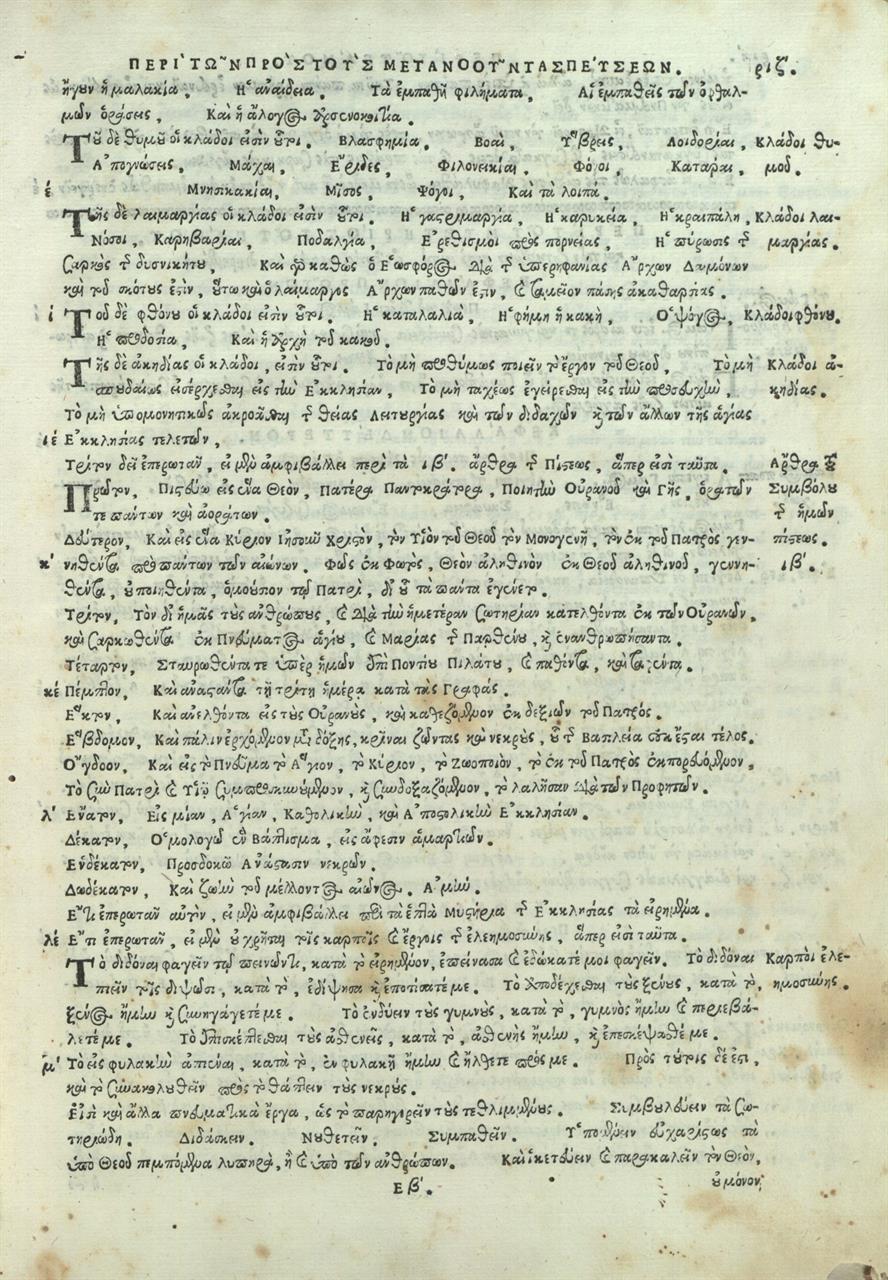 ΠΕΡΙ ΤΩΝ ΠΡΟΣ ΤΟΥΣ ΜΕΤΑΝΟΟΥΝΤΑΣ ΠΕΥΣΕΩΝ. ριζ.
ἤγουν ἡ μαλακία, Ἡ ἀναίδεια, Τὰ ἐμπαθῆ φιλήματα, Αἱ ἐμπαθεῖς τῶν ὀφθαλ-
μῶν ὁράσεις, Καὶ ἡ ἄλογος
Τοῦ δὲ θυμοῦ οἱ κλάδοι εἰσὶν οὗτοι. Βλασφημία, Βοαὶ, Ὕβρεις, Λοιδορίαι, Κλάδοι θυ-
Ἀπογνώσεις, Μάχαι, Ἔριδες, Φιλονεικίαι, Φόνοι, Κατάραι, μοῦ.
έ Μνησικακίαι, Μῖσος, Ψόγοι, Καὶ τὰ λοιπά.
Τῆς δὲ λαιμαργίας οἱ κλάδοι εἰσὶν οὗτοι. Ἡ γαστριμαργία, Ἡ καρυκεία, Ἡ κραιπάλη, Κλάδοι λαι-
Νόσοι, Καρηβαρίαι, Ποδαλγία, Ἐρεθισμοὶ πρὸς πορνείας, Ἡ πύρωσις τῆς μαργίας.
σαρκὸς τῆς δυσνικήτου, Καὶ γὰρ καθὼς ὁ Ἑωσφόρος διὰ τῆς ὑπερηφανίας Ἄρχων Δαιμόνων
καὶ τοῦ σκότους ἐστὶν, οὕτω καὶ ὁ λαίμαργος Ἄρχων παθῶν ἐστιν, καὶ ταμεῖον πάσης ἀκαθαρσίας.
ί Τοῦ δὲ φθόνου οἱ κλάδοι εἰσὶν οὗτοι. Ἡ καταλαλιὰ, Ἡ φήμη ἡ κακὴ, Ὁ ψόγος, Κλάδοι φθόνου.
Ἡ προδοσία, Καὶ ἡ ἀρχὴ τοῦ κακοῦ.
Τῆς δὲ ἀκηδίας οἱ κλάδοι, εἰσὶν οὗτοι. Τὸ μὴ προθύμως ποιεῖν τὸ ἔργον τοῦ Θεοῦ, Τὸ μὴ Κλάδοι ἀ-
σπουδαίως εἰσέρχεσθαι εἰς τὴν Ἐκκλησίαν, Τὸ μὴ ταχέως ἐγείρεσθαι εἰς τὴν προσευχὴν, κηδίας.
Τὸ μὴ ὑπομονητικῶς ἀκροᾶσθαι τῆς θείας Λειτουργίας καὶ τῶν διδαχῶν καὶ τῶν ἄλλων τῆς ἁγίας
ιέ Ἐκκλησίας τελετῶν,
Τρίτον δεῖ ἐπερωτᾶν, εἰ μὴν ἀμφιβάλλει περὶ τὰ ιβ'. ἄρθρα τῆς Πίστεως, ἅπερ εἰσὶ ταῦτα. Ἄρθρα τοῦ
Πρῶτον, Πιστεύω εἰς ἕνα Θεὸν, Πατέρα Παντοκράτορα, Ποιητὴν Οὐρανοῦ καὶ Γῆς, ὁρατῶν Συμβόλου
τε πάντων καὶ ἀοράτων. τῆς ἡμῶν
Δεύτερον, Καὶ εἰς ἕνα Κύριον Ἰησοῦν Χριστὸν, τὸν Υἱὸν τοῦ Θεοῦ τὸν Μονογενῆ, τὸν ἐκ τοῦ Πατρὸς γεν- πίστεως.
κ' νηθέντα πρὸ πάντων τῶν αἰώνων. Φῶς ἐκ Φωτὸς, Θεὸν ἀληθινὸν ἐκ Θεοῦ ἀληθινοῦ, γεννη- ιβ'.
θέντα, οὐ ποιηθέντα, ὁμοούσιον τῷ Πατρὶ, δι' οὗ τὰ πάντα ἐγένετο.
Τρίτον, Τὸν δι' ἡμᾶς τοὺς ἀνθρώπους, καὶ διὰ τὴν ἡμετέραν σωτηρίαν κατελθόντα ἐκ τῶν Οὐρανῶν,
καὶ σαρκωθέντα ἐκ Πνεύματος ἁγίου, καὶ Μαρίας τῆς Παρθένου, καὶ ἐνανθρωπήσαντα.
Τέταρτον, Σταυρωθέντα τε ὑπὲρ ἡμῶν ἐπὶ Ποντίου Πιλάτου, καὶ παθόντα, καὶ ταφέντα.
κέ Πέμπτον, Καὶ ἀναστάντα τῇ τρίτῃ ἡμέρᾳ κατὰ τὰς Γραφάς.
Ἕκτον, Καὶ ἀνελθόντα εἰς τοὺς Οὐρανοὺς, καὶ καθεζόμενον ἐκ δεξιῶν τοῦ Πατρός.
Ἕβδομον, Καὶ πάλιν ἐρχόμενον μετὰ δόξης, κρῖναι ζῶντας καὶ νεκροὺς, οὗ τῆς βασιλείας οὐκ ἔσται τέλος.
Ὄγδοον, Καὶ εἰς τὸ Πνεῦμα τὸ Ἅγιον, τὸ Κύριον, τὸ Ζωοποιὸν, τὸ ἐκ τοῦ Πατρὸς ἐκπορευόμενον,
Τὸ σὺν Πατρὶ καὶ Υἱῷ συμπροσκυνούμενον, καὶ συνδοξαζόμενον, τὸ λαλῆσαν διὰ τῶν Προφητῶν.
λ' Ἔνατον, Εἰς μίαν, Ἁγίαν, Καθολικὴν, καὶ Ἀποστολικὴν Ἐκκλησίαν.
Δέκατον, Ὁμολογῶ ἓν Βάπτισμα, εἰς ἄφεσιν ἁμαρτιῶν.
Ἑνδέκατον, Προσδοκῶ Ἀνάστασιν νεκρῶν.
Δωδέκατον, Καὶ ζωὴν τοῦ μέλλοντος αἰῶνος. Ἀμήν.
Ἔτι ἐπερωτᾶν αὐτὸν, εἰ μὴν ἀμφιβάλλει περὶ τὰ ἑπτὰ Μυστήρια τῆς Ἐκκλησίας τὰ εἰρημένα.
λέ Ἔτι ἐπερωτᾶν, εἰ μὴν οὐ χρῆται τοῖς καρποῖς καὶ ἔργοις τῆς ἐλεημοσύνης, ἅπερ εἰσὶ ταῦτα.
Τὸ διδόναι φαγεῖν τῷ πεινῶντι, κατὰ τὸ εἰρημένον, ἐπείνασα καὶ ἐδώκατέ μοι φαγεῖν. Τὸ διδόναι Καρποὶ ἐλε-
πιεῖν τοῖς διψῶσι, κατὰ τὸ, ἐδίψησα καὶ ἐποτίσατέ με. Τὸ ὑποδέχεσθαι τοὺς ξένους, κατὰ τὸ, ημοσύνης.
ξένος ἤμην καὶ συνηγάγετέ με. Τὸ ἐνδύειν τοὺς γυμνοὺς, κατὰ τὸ, γυμνὸς ἤμην καὶ περιεβά-
λετέ με. Τὸ ἐπισκέπτεσθαι τοὺς ἀσθενεῖς, κατὰ τὸ, ἀσθενὴς ἤμην, καὶ ἐπεσκέψασθέ με.
μ' Τὸ εἰς φυλακὴν ἀπιέναι, κατὰ τὸ, ἐν φυλακῇ ἤμην καὶ ἤλθετε πρός με. Πρὸς τούτοις δέ ἐστι,
καὶ τὸ συνακολουθεῖν πρὸς τὸ θάπτειν τοὺς νεκρούς.
Εἰσὶ καὶ ἄλλα πνευματικὰ ἔργα, ὡς τὸ παρηγορεῖν τοὺς τεθλιμμένους. Συμβουλεύειν τὰ σω-
τηριώδη. Διδάσκειν. Νουθετεῖν. Συμπαθεῖν. Ὑπομένειν εὐχαρίστως τὰ
ὑπὸ Θεοῦ πεμπόμενα λυπηρὰ, ἢ καὶ ὑπὸ τῶν ἀνθρώπων. Καὶ ἱκετεύειν καὶ παρακαλεῖν τὸν Θεὸν,
Ε β'. οὐ μόνον